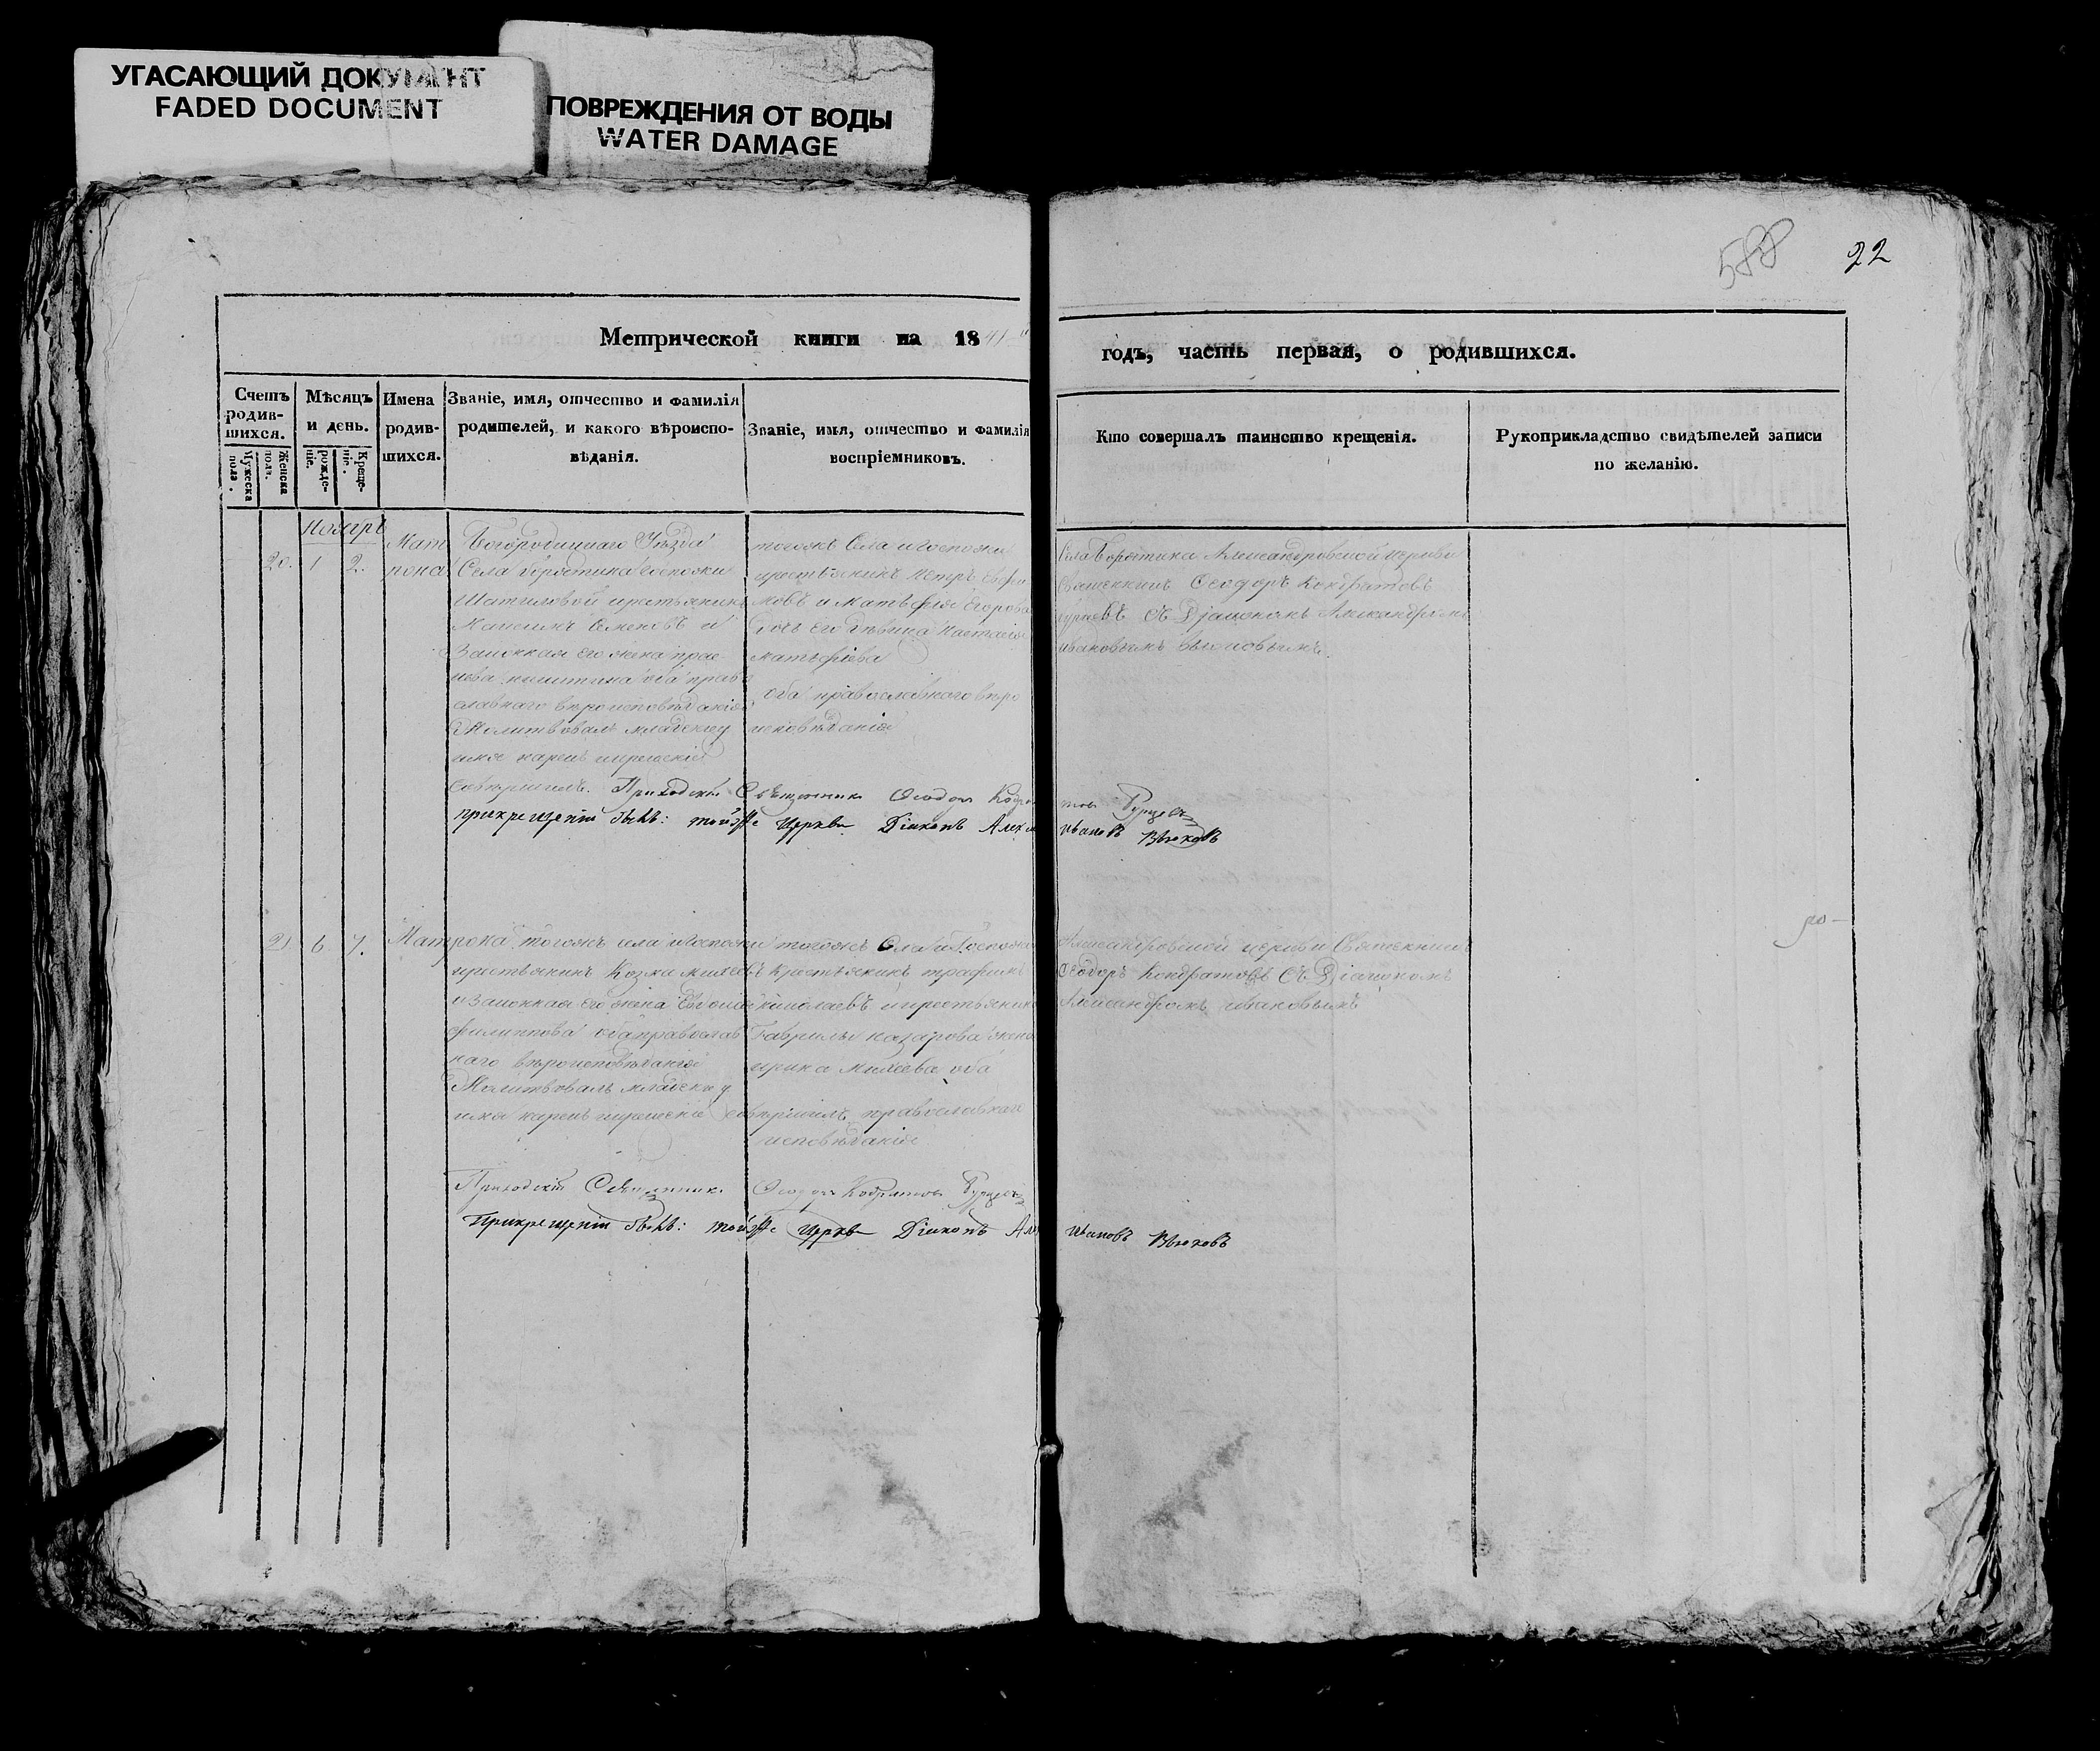 УГАСАЮЩИЙ ДОКУМЕНТ
FADED DOCUMENT
ПОВРЕЖДЕНИЯ ОТ ВОДЫ
WATER DAMAGE
588 22
Метрической книги на 1841
годъ, часть первая, о родившихся.
Счетъ родив-шихся.
Мужеска пола.
Женска пола.
Мѣсяцъ и день.
рожде-ніе.
Креще-ніе.
Имена родив-шихся.
Званіе, имя, отчество и фамилія
родителей, и какого вѣроиспо-
вѣданія.
Званіе, имя, отчество и фамилія
воспріемниковъ.
Кто совершалъ таинство крещенія.
Рукоприкладство свидѣтелей записи
по желанію.
Ноябрь
20. 1 2.
Мат
рона
Богородицкаго Уѣзда
Села Госпожи
Шатиловой крестьянинъ
Семеновъ и
Законная его жена
Никитина оба право
славнаго вѣроисповѣданія
Молитвовалъ младенцу
имя нарекъ крещеніе
совершилъ.
тогожъ Села и Госпожи
крестьянинъ Петръ
мовъ и Матѳія Егорова
дочь его дѣвица Настасія
Матѳіева
оба православнаго вѣро
исповѣданія
Села Александровской церкви
Священникъ Ѳеодоръ Кондратовъ
съ Діакономъ Александромъ
Ивановымъ Вьюковымъ.
Приходскій Священникъ Ѳеодоръ
при крещеніи былъ: тойже Церкви Діаконъ Иванов Вьюковъ
21 6 7.
Матрона
тогожъ села и Госпожи
крестьянинъ Козма Михеевъ
и Законная его жена
Филиппова оба православ
наго вѣроисповѣданія
Молитвовалъ младенцу
имя нарекъ крещеніе совершилъ
тогожъ Села и Госпожи
Крестьянинъ Трафимъ
Николаевъ и крестьянина
Гаврилы Назарова жена
Ирина Михеева оба
православнаго
исповѣданія
Александровской церкви Священникъ
Ѳеодоръ Кондратовъ съ Діакономъ
Александромъ Ивановымъ
Приходскій Священникъ Ѳеодоръ
При крещеніи былъ: тойже Церкви Діаконъ Ивановъ Вьюковъ
ро-